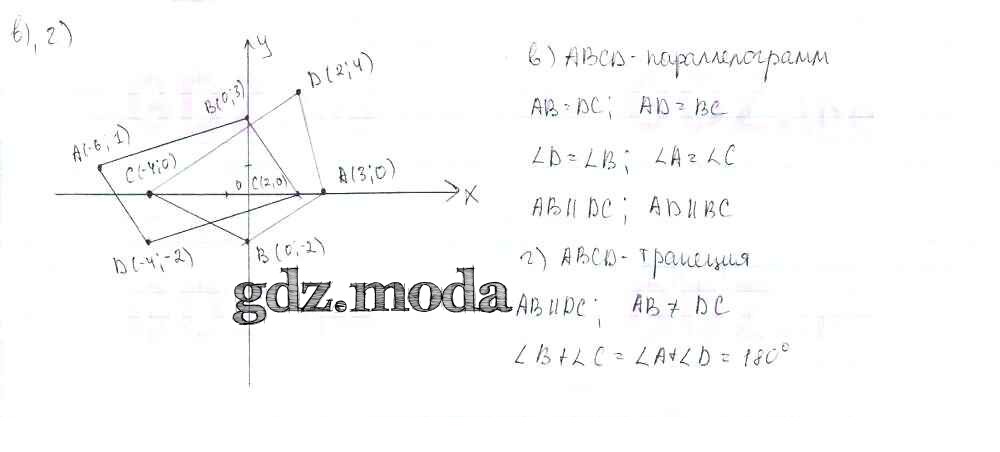 в), г)
y
D(2;4)
B(0;3)
A(-6;1)
C(-4;0)
0
C(2;0)
A(3;0)
x
D(-4;-2)
B(0;-2)
gdz.moda
в) ABCD - параллелограмм
AB = DC; AD = BC
∠D = ∠B; ∠A = ∠C
AB || DC; AD || BC
г) ABCD - трапеция
AB || DC; AB ≠ DC
∠B + ∠C = ∠A + ∠D = 180°